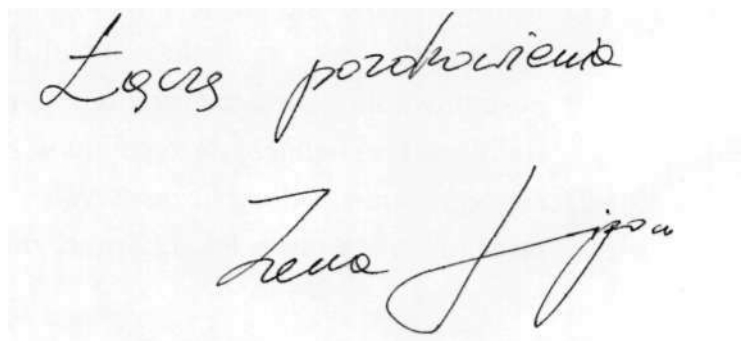 Łączę pozdrowienia
Irena